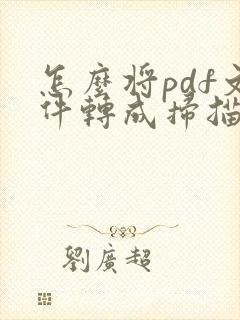 怎麼将pdf文
件轉成掃描
劉廣超